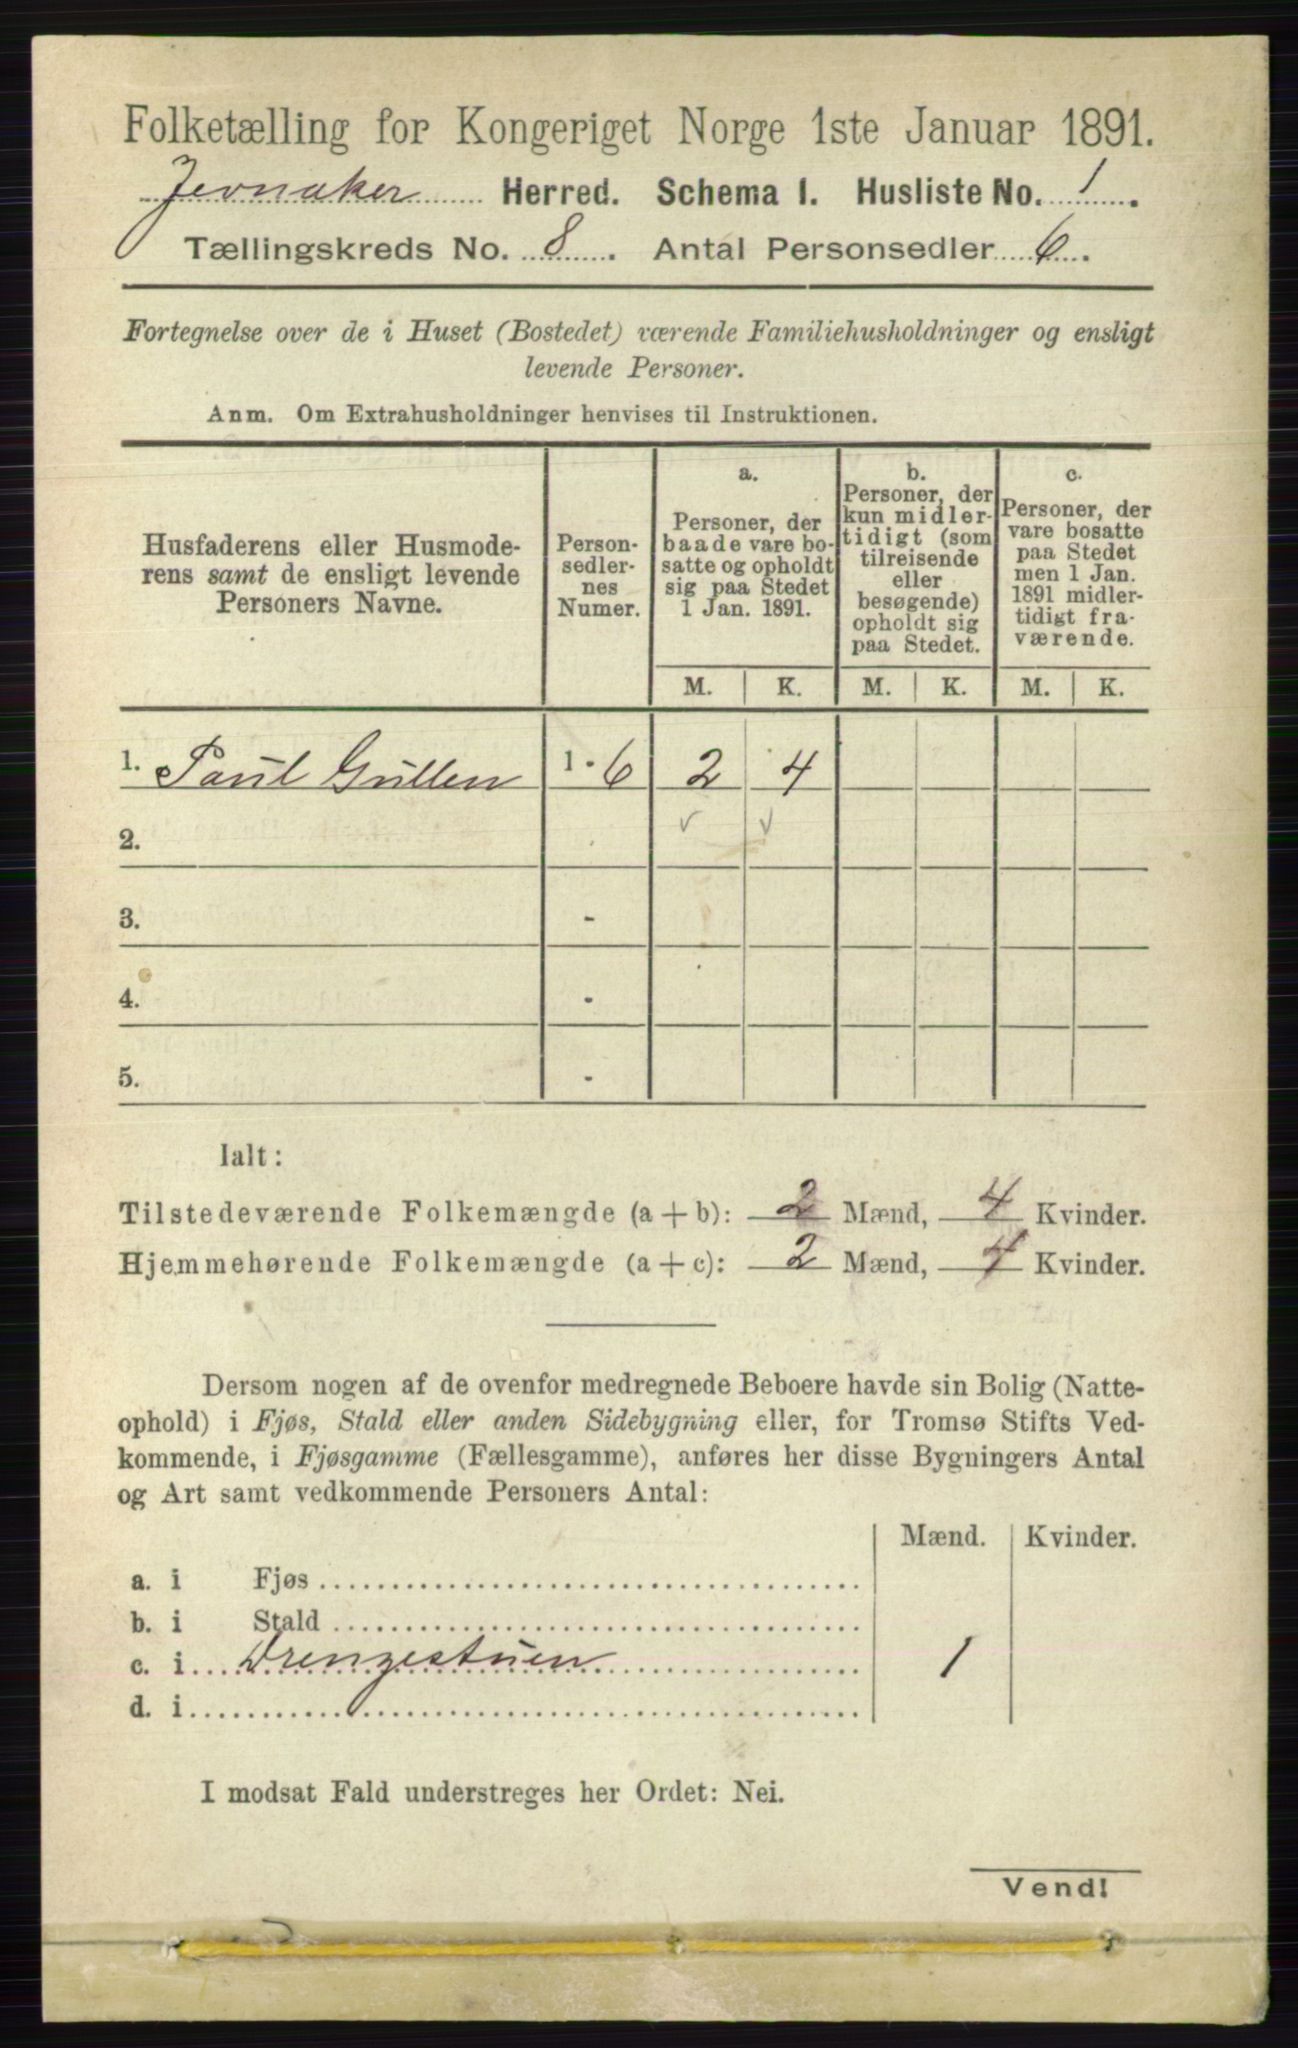 Folketælling for Kongeriget Norge 1ste Januar 1891.
Jevnaker Herred. Schema I. Husliste No. 1.
Tællingskreds No. 8. Antal Personsedler 6.
Fortegnelse over de i Huset (Bostedet) værende Familiehusholdninger og ensligt
levende Personer.
Anm. Om Extrahusholdninger henvises til Instruktionen.
Husfaderens eller Husmode-
rens samt de ensligt levende
Personers Navne.
Person-
sedler-
nes
Numer.
a.
Personer, der
baade vare bo-
satte og opholdt
sig paa Stedet
1 Jan. 1891.
b.
Personer, der
kun midler-
tidigt (som
tilreisende
eller
besøgende)
opholdt sig
paa Stedet.
c.
Personer, der
vare bosatte
paa Stedet
men 1 Jan.
1891 midler-
tidigt fra-
værende.
M. K. M. K. M. K.
1. Paul Gullen 1 - 6 2 4
2.
3. -
4. -
5. -
Ialt:
Tilstedeværende Folkemængde (a + b): 2 Mænd, 4 Kvinder.
Hjemmehørende Folkemængde (a + c): 2 Mænd, 4 Kvinder.
Dersom nogen af de ovenfor medregnede Beboere havde sin Bolig (Natte-
ophold) i Fjøs, Stald eller anden Sidebygning eller, for Tromsø Stifts Ved-
kommende, i Fjøsgamme (Fællesgamme), anføres her disse Bygningers Antal
og Art samt vedkommende Personers Antal:
Mænd. Kvinder.
a. i Fjøs
b. i Stald
c. i Drengestuen 1
d. i
I modsat Fald understreges her Ordet: Nei.
Vend!